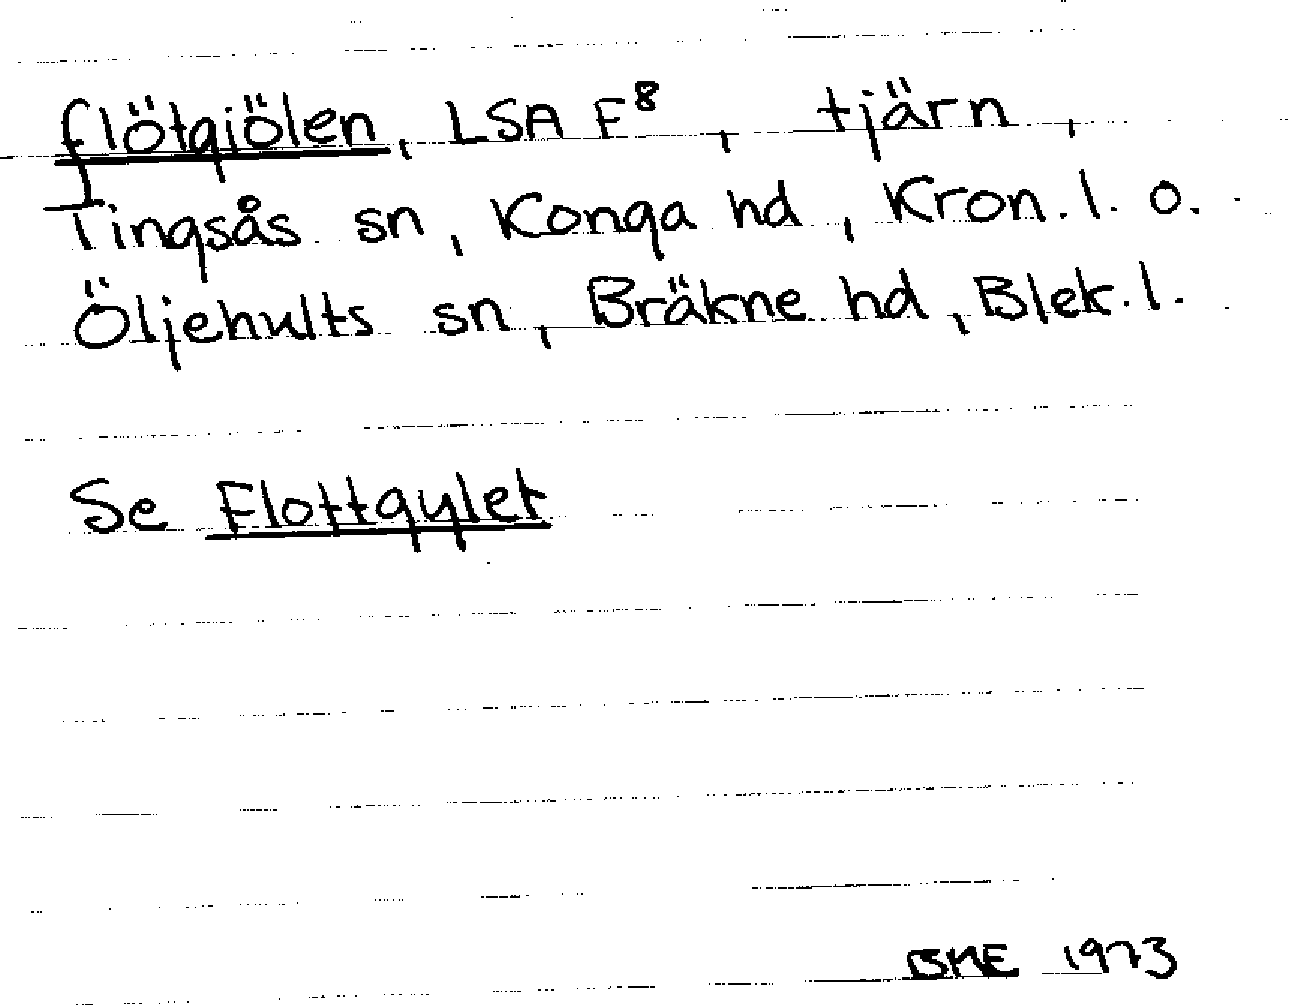 flötgiölen, LSA F⁸, tjärn,
Tingsås sn, Konga hd, Kron. l. o.
Öljehults sn, Bräkne hd, Blek. l.
Se Flottgylet
BME 1973